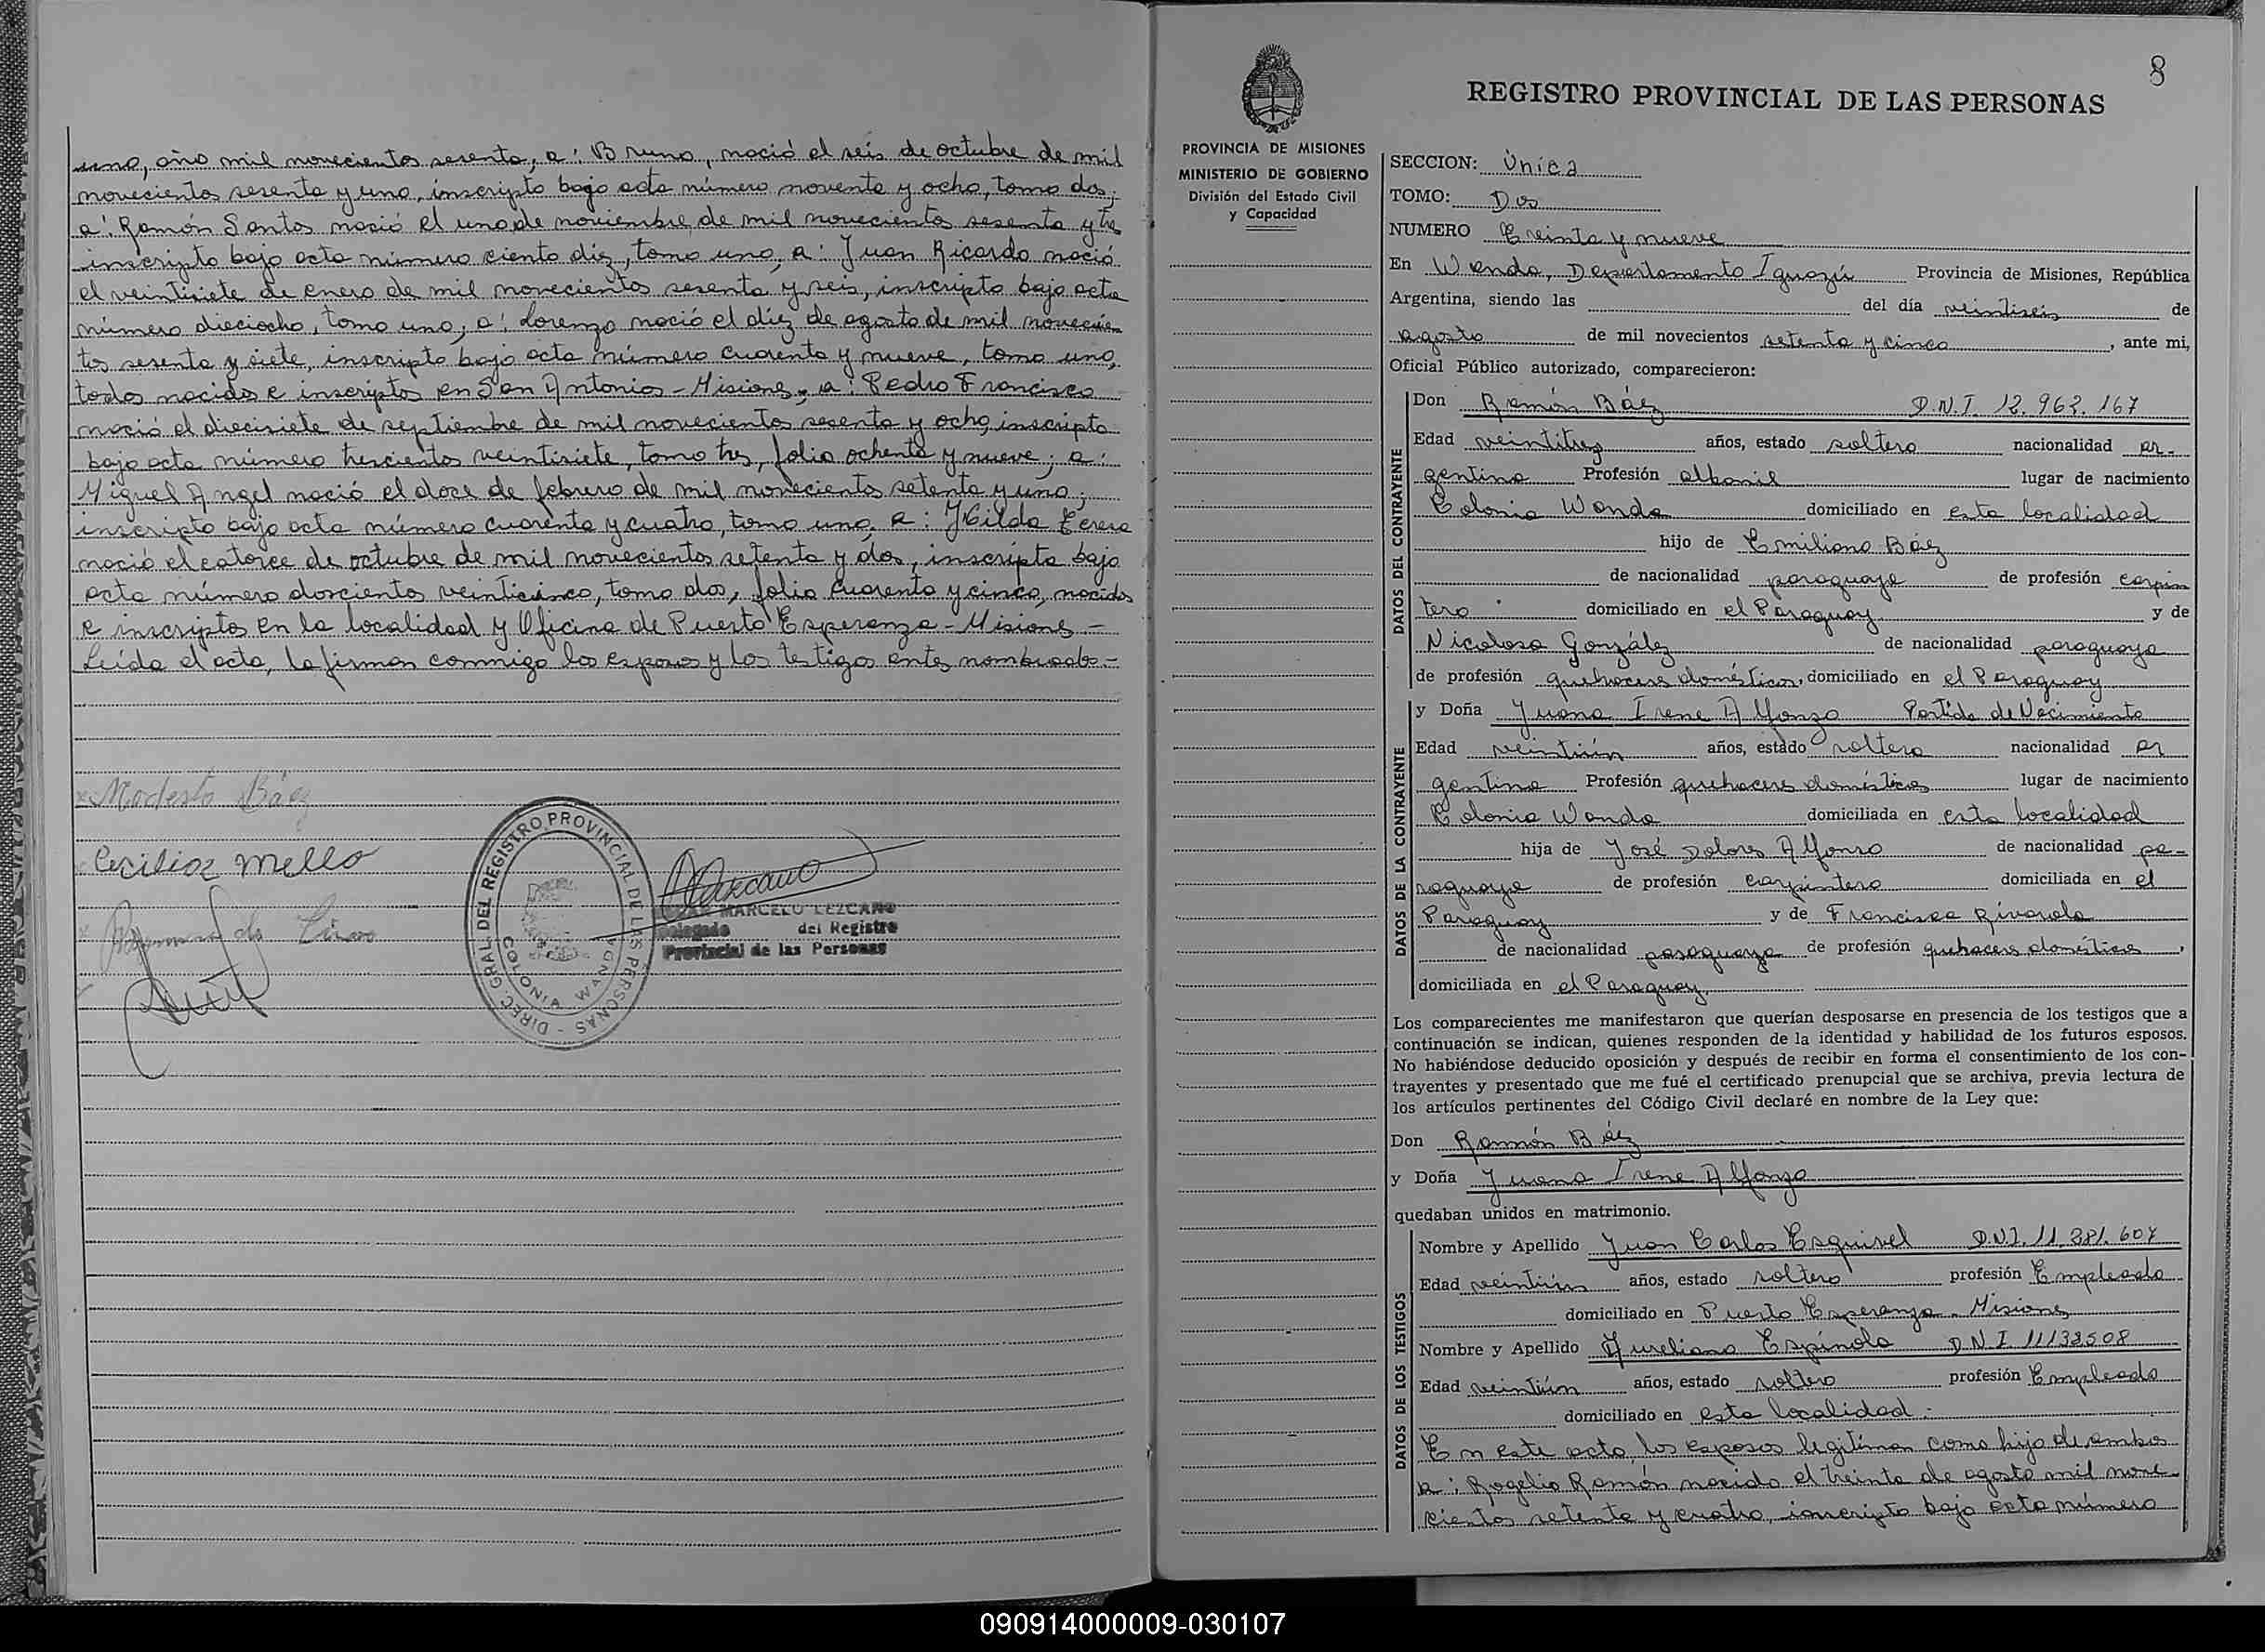 uno, año mil novecientos sesenta, a: Bruno, nació el seis de octubre de mil
novecientos sesenta y uno, inscripto bajo acta número noventa y ocho, tomo dos;
a: Ramón Santos nació el uno de noviembre de mil novecientos sesenta y tres
inscripto bajo acta número ciento diéz, tomo uno, a: Juan Ricardo nació
el veintisiete de enero de mil novecientos sesenta y seis, inscripto bajo acta
número dieciocho, tomo uno; a: Lorenzo nació el diéz de agosto de mil novecien
tos sesenta y siete, inscripto bajo acta número cuarenta y nueve, tomo uno,
todos nacidos e inscriptos en San Antonio - Misiones; a: Pedro Francisco
nació el diecisiete de septiembre de mil novecientos sesenta y ocho, inscripto
bajo acta número trescientos veintisiete, tomo tres, folio ochenta y nueve; a:
Miguel Angel nació el doce de febrero de mil novecientos setenta y uno;
inscripto bajo acta número cuarenta y cuatro, tomo uno, a: Hilda Teresa
nació el catorce de octubre de mil novecientos setenta y dos, inscripta bajo
acta número doscientos veinticinco, tomo dos, folio cuarenta y cinco, nacidos
e inscriptos en la localidad y Oficina de Puerto Esperanza - Misiones -
Leída el acta, la firman conmigo los esposos y los testigos antes nombrados -
Modesto Báez
Cecilia Mello
DIREC. GRAL. DEL REGISTRO PROVINCIAL DE LAS PERSONAS -
COLONIA WANDA
MARCELO LEZCANO
Delegado del Registro
Provincial de las Personas
8
REGISTRO PROVINCIAL DE LAS PERSONAS
PROVINCIA DE MISIONES
MINISTERIO DE GOBIERNO
División del Estado Civil
y Capacidad
SECCION: Única
TOMO: Dos
NUMERO Treinta y nueve
En Wanda, Departamento Iguazú Provincia de Misiones, República
Argentina, siendo las del día veintiseis de
agosto de mil novecientos setenta y cinco, ante mi,
Oficial Público autorizado, comparecieron:
DATOS DEL CONTRAYENTE
Don Ramón Báez D.N.I. 12.962.167
Edad veintitres años, estado soltero nacionalidad ar-
gentina Profesión albanil lugar de nacimiento
Colonia Wanda domiciliado en esta localidad
hijo de Emiliano Báez
de nacionalidad paraguaya de profesión carpin
tero domiciliado en el Paraguay y de
Nicolasa González de nacionalidad paraguaya
de profesión quehaceres domésticos, domiciliado en el Paraguay
DATOS DE LA CONTRAYENTE
y Doña Juana Irene Alfonzo Partida de Nacimiento
Edad veintiún años, estado soltera nacionalidad ar
gentina Profesión quehaceres domésticos lugar de nacimiento
Colonia Wanda domiciliada en esta localidad
hija de José Dolores Alfonso de nacionalidad pa-
raguaya de profesión carpintero domiciliada en el
Paraguay y de Francisca Rivarola
de nacionalidad paraguaya de profesión quehaceres domésticos,
domiciliada en el Paraguay
Los comparecientes me manifestaron que querían desposarse en presencia de los testigos que a
continuación se indican, quienes responden de la identidad y habilidad de los futuros esposos.
No habiéndose deducido oposición y después de recibir en forma el consentimiento de los con-
trayentes y presentado que me fué el certificado prenupcial que se archiva, previa lectura de
los artículos pertinentes del Código Civil declaré en nombre de la Ley que:
Don Ramón Báez
y Doña Juana Irene Alfonzo
quedaban unidos en matrimonio.
DATOS DE LOS TESTIGOS
Nombre y Apellido Juan Carlos Esquivel D.N.I. 11.381.607
Edad veintiún años, estado soltero profesión Empleado
domiciliado en Puerto Esperanza - Misiones
Nombre y Apellido Aureliano Espínola D.N.I 11132508
Edad veintiún años, estado soltero profesión Empleado
domiciliado en esta localidad.-
En este acto, los esposos legitiman como hijo de ambos
a: Rogelio Ramón nacido el treinta de agosto mil nove
cientos setenta y cuatro, inscripto bajo acta número
090914000009-030107